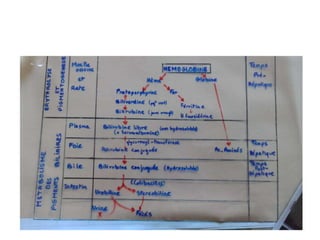 Moelle
osseuse
et
Rate
HEMOGLOBINE
Hème
Globine
Temps
Pré-
Hépatique
ERYTHROLYSE
ET
PIGMENTOGENESE
Protoporphyrine
Fer
Biliverdine
Ferritine
Bilirubine
Hémosidérine
Plasma
Bilirubine libre (non hydrosoluble)
Foie
Bilirubine conjuguée
Ac. Aminés
Temps
Hépatique
Bile
Bilirubine conjuguée (Hydrosoluble)
Temps
Post-
Hépatique
Intestin
(Colibacilles)
Urobiline
Stercobiline
Urine
Fèces
METABOLISME
DES
PIGMENTS BILIAIRES